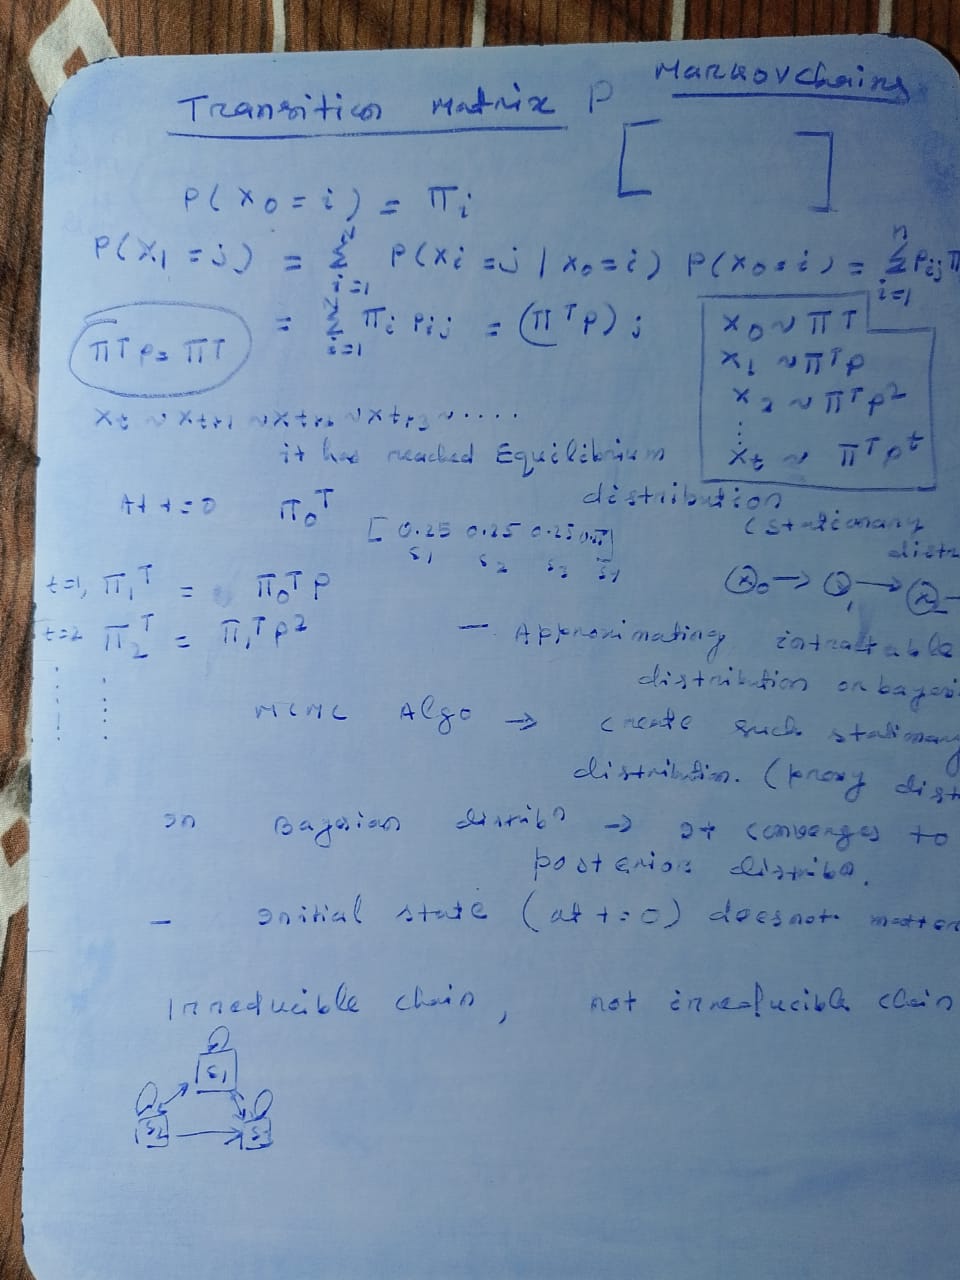 Markov chains
Transition Matrix P [ ]
P(x0 = i) = πi
P(x1 = j) = Σ i=1 P(xi = j | x0 = i) P(x0 = i) = Σ n i=1 Pij π
= Σ i=1 πi Pij = (π^T P)j
π^T P = π^T
x0 ~ π^T
x1 ~ π^T P
x2 ~ π^T P^2
⋮
xt ~ π^T P^t
xt ~ xt+1 ~ xt+2 ~ xt+3 ~ ....
it has reached Equilibrium
distribution
(stationary
distr
At t=0 π0^T
[ 0.25 0.25 0.25 ]
S1 S2 S3
x0 → → x2
t=1, π1^T = π0^T P
t=2 π2^T = π1^T P^2
- Approximating intractable
distribution on bayesi
MCMC Algo → create such stationary
distribution. (proxy dist
In Bayesian distribn → It converges to
posterior distribn.
- Initial state (at t=0) does not matter
Irreducible chain, not irreducible chain
S1
S2